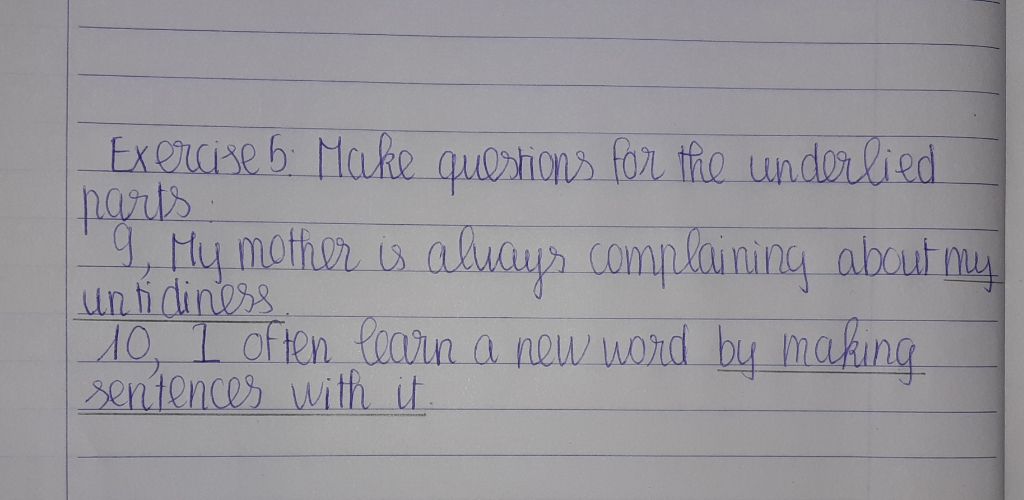 Exercise 5: Make questions for the underlied
parts.
9, My mother is always complaining about my
untidiness.
10, I often learn a new word by making
sentences with it.